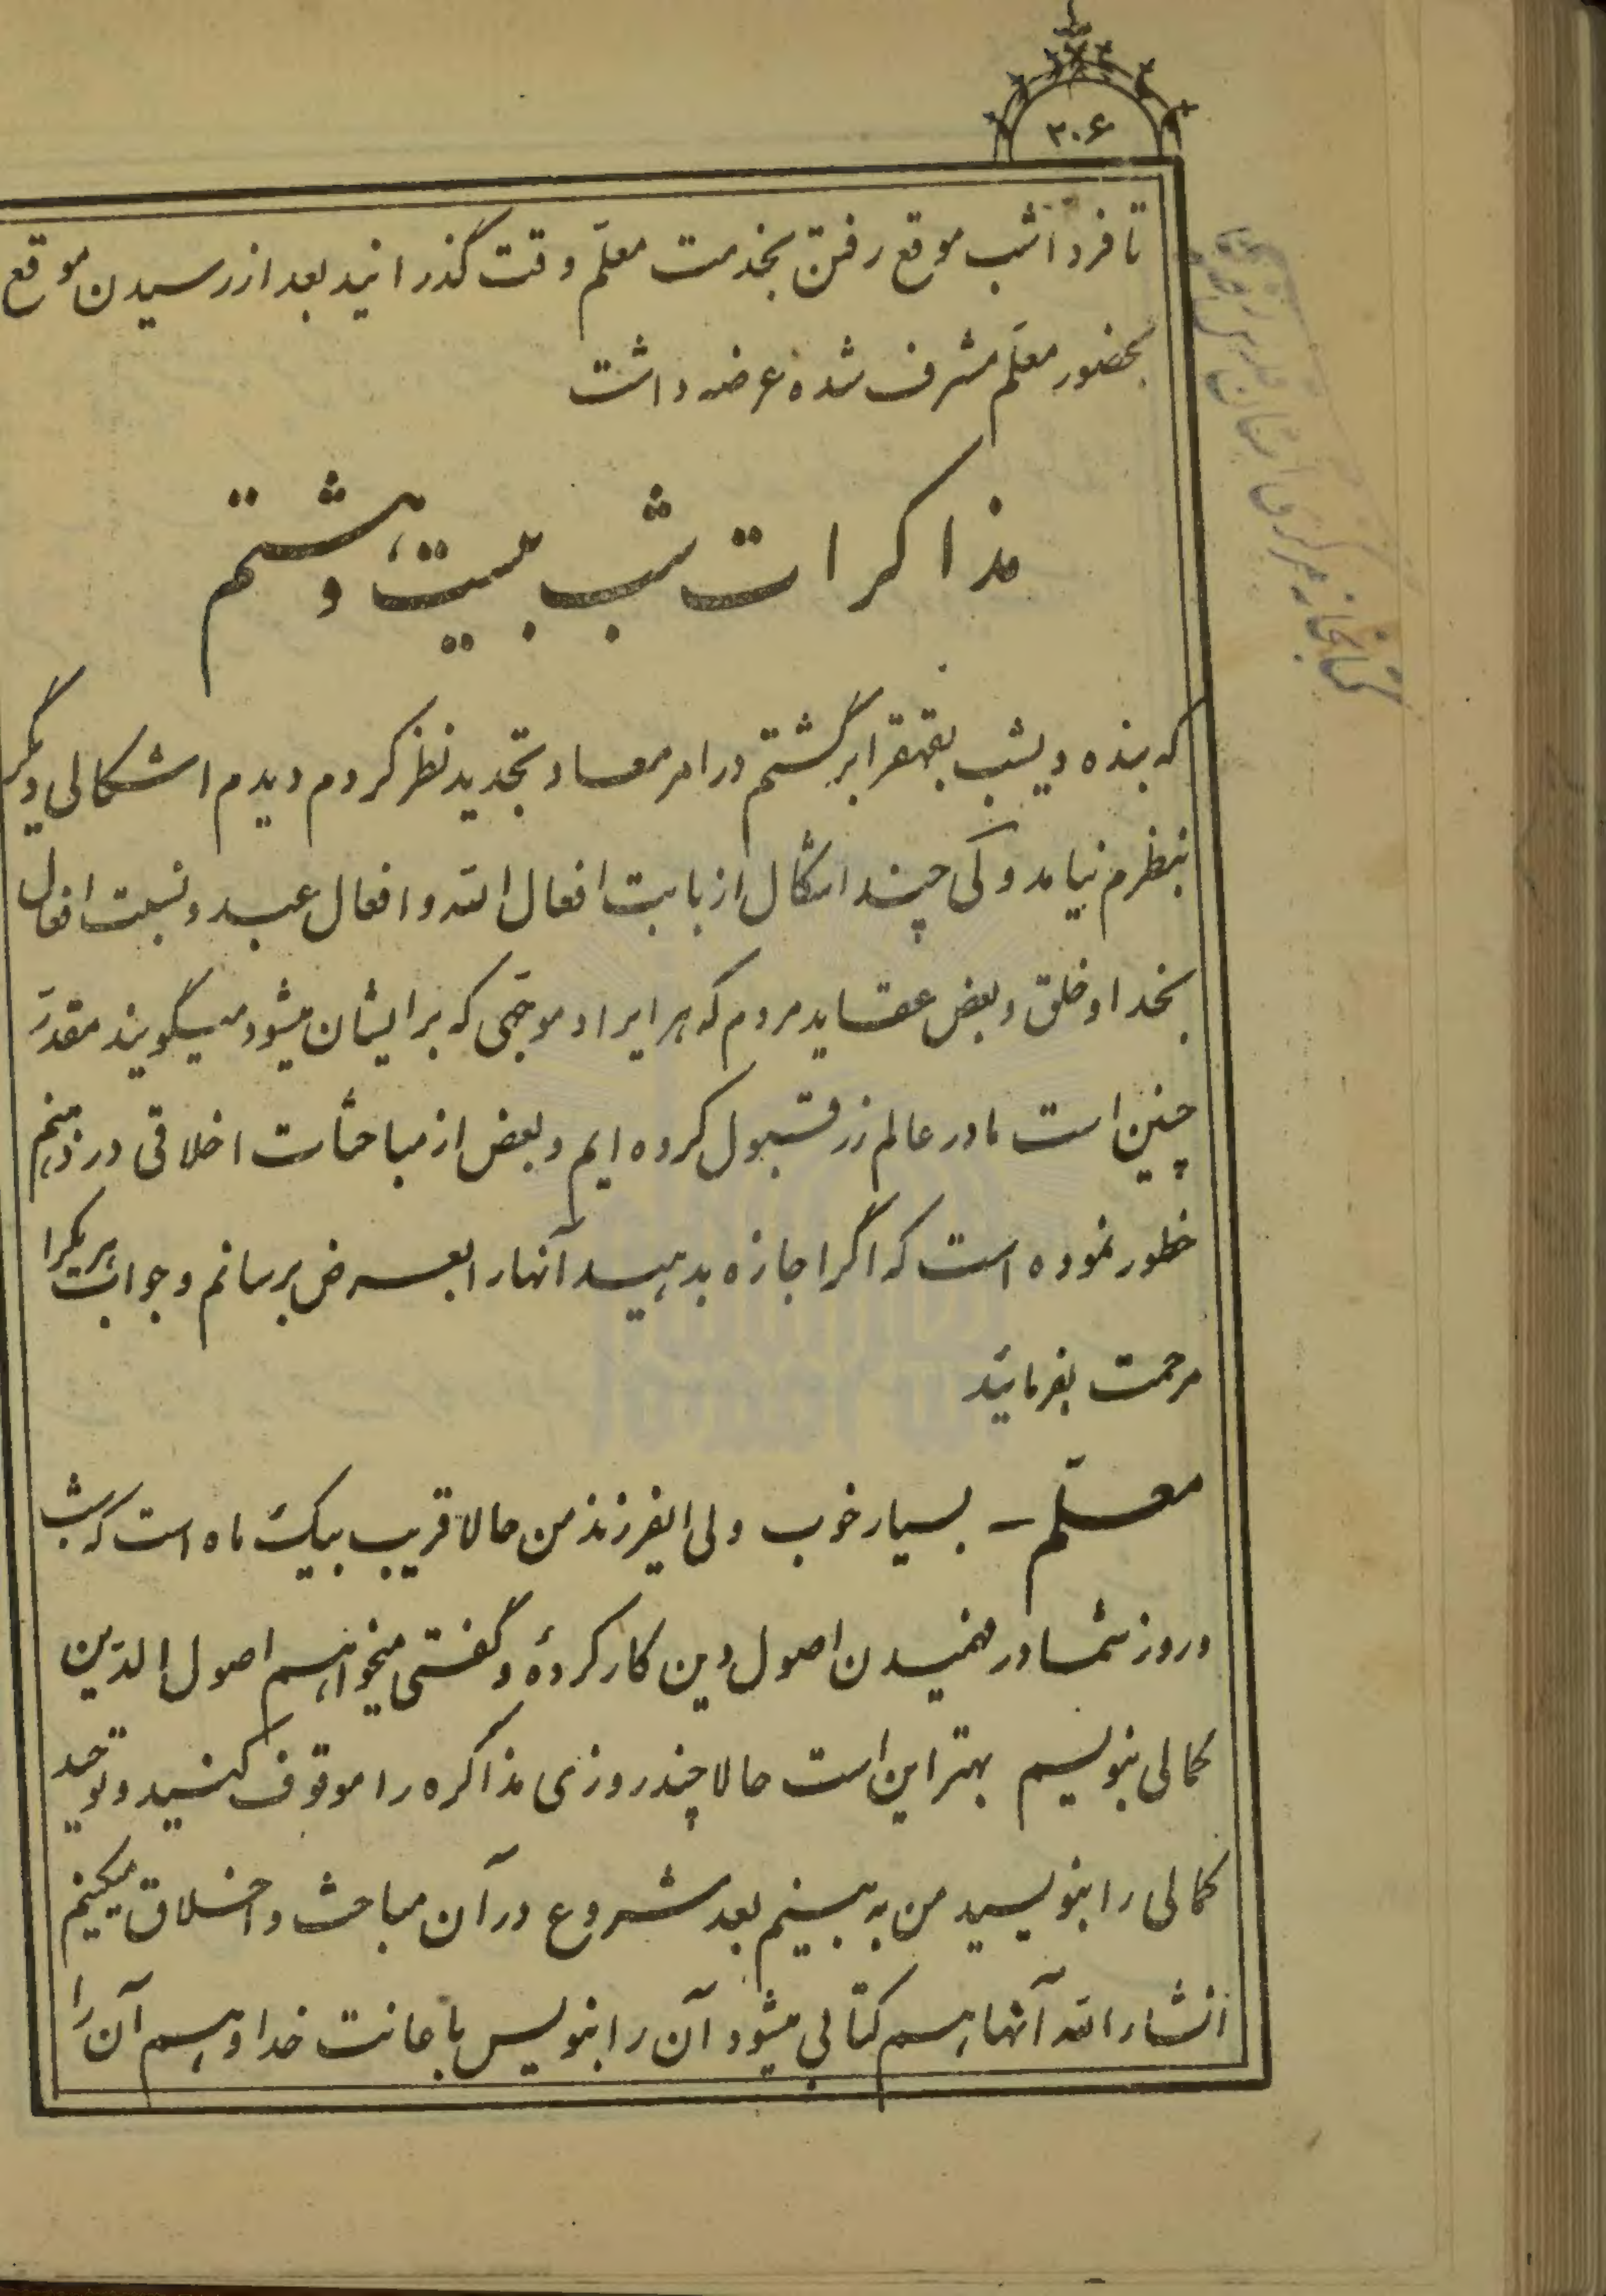 ۳۰۶
تا فردا شب موقع رفتن بخدمت معلّم وقت گذرانید بعد از رسیدن موقع
بحضور معلّم مشرف شده عرضه داشت
مذاکرات شب بیست و هشتم
که بنده دیشب بقهقرا برگشتم در امر معاد تجدید نظر کردم دیدم اشکالی دیگر
بنظرم نیامد ولی چند اشکال از بابت افعال الله و افعال عبد و نسبت افعال
بخدا و خلق و بعض عقاید مردم که هر ایراد موجّهی که برایشان میشود میگویند مقدّر
چنین است ما در عالم زر قبول کرده ایم و بعض از مباحثات اخلاقی در ذهنم
خطور نموده است که اگر اجازه بدهید آنها را بعرض برسانم و جواب هر یکرا
مرحمت بفرمائید
معلّم – بسیار خوب ولی ایفرزند من حالا قریب بیک ماه است که شب
و روز شما در فهمیدن اصول دین کار کردهٔ و گفتی میخواهم اصول الدّین
کمالی بنویسم بهتر این است حالا چند روزی مذاکره را موقوف کنید و توحید
کمالی را بنویسید من به بینم بعد شروع در آن مباحث و اخلاق میکنیم
انشاء الله آنها هم کتابی میشود آن را بنویس باعانت خدا و هم آن را
کتابخانه مرکزی آستان قدس رضوی